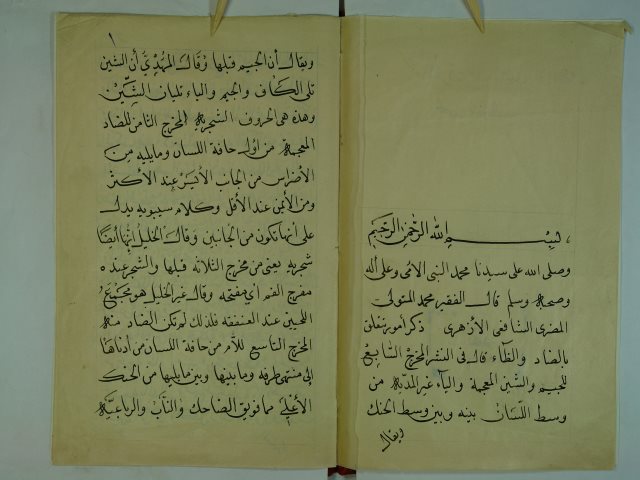 بسم الله الرحمن الرحيم
وصلى الله على سيدنا محمد النبى الامى وعلى اله
وصحبه وسلم قال الفقير محمد المتولى
المصرى الشافعى الأزهرى ذكر أمور تتعلق
بالضاد والظاء قال فى النشر المخرج السابع
للجيم والشين المعجمة والياء غير المدية من
وسط اللسان بينه وبين وسط الحنك
ويقال
١
ويقال أن الجيم قبلها وقال المهدوي أن الشين
تلى الكاف والجيم والياء تليان الشين
وهذه هى الحروف الشجرية المخرج الثامن للضاد
المعجمة من أول حافة اللسان وما يليه من
الأضراس من الجانب الأيسر عند الأكثر
ومن الأيمن عند الأقل وكلام سيبويه يدل
على أنها تكون من الجانبين وقال الخليل إنها أيضا
شجريه يعنى من مخرج الثلاثة قبلها والشجر عنده
مفرج الفم أى مفتحه وقال غير الخليل هو مجمع
اللحيين عند العنفقة فلذلك لم تكن الضاد منه
المخرج التاسع للام من حافة اللسان من أدناها
إلى منتهى طرفه وما بينها وبين ما يليها من الحنك
الأعلى مما فويق الضاحك والناب والرباعية